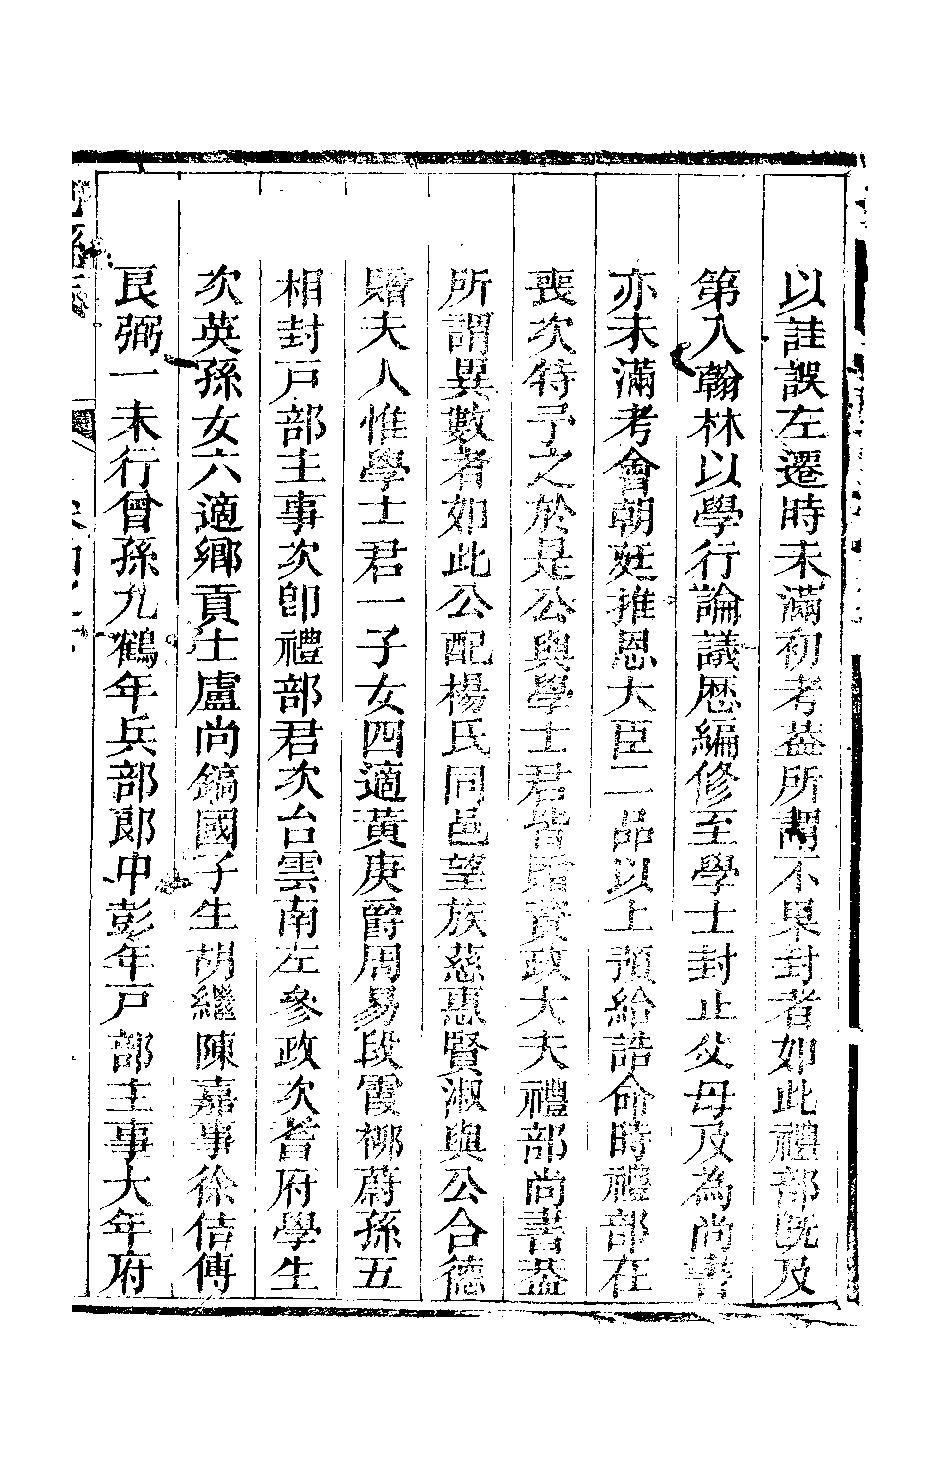 以詿誤左遷時未滿初考葢所謂不果封者如此禮部既及
第入翰林以學行論議歷編修至學士封止父母及為尚書
亦未滿考會朝廷推恩大臣二品以上預給誥命時禮部在
喪次特予之於是公與學士君皆贈資政大夫禮部尚書葢
所謂異數者如此公配楊氏同邑望族慈惠賢淑與公合德
贈夫人惟學士君一子女四適黃庚爵周易段霞柳蔚孫五
相封戶部主事次卽禮部君次台雲南左參政次耆府學生
次英孫女六適鄉貢士盧尚鎬國子生胡繼陳嘉事徐佶傅
良弼一未行曾孫九鶴年兵部郎中彭年戶部主事大年府